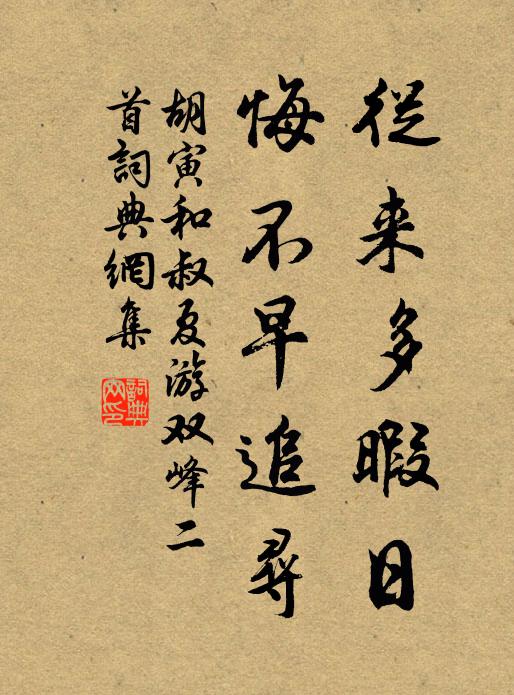 從来多暇日
悔不早追尋
胡寅和叔夏游双峰二
首詞典網集
詞典網印